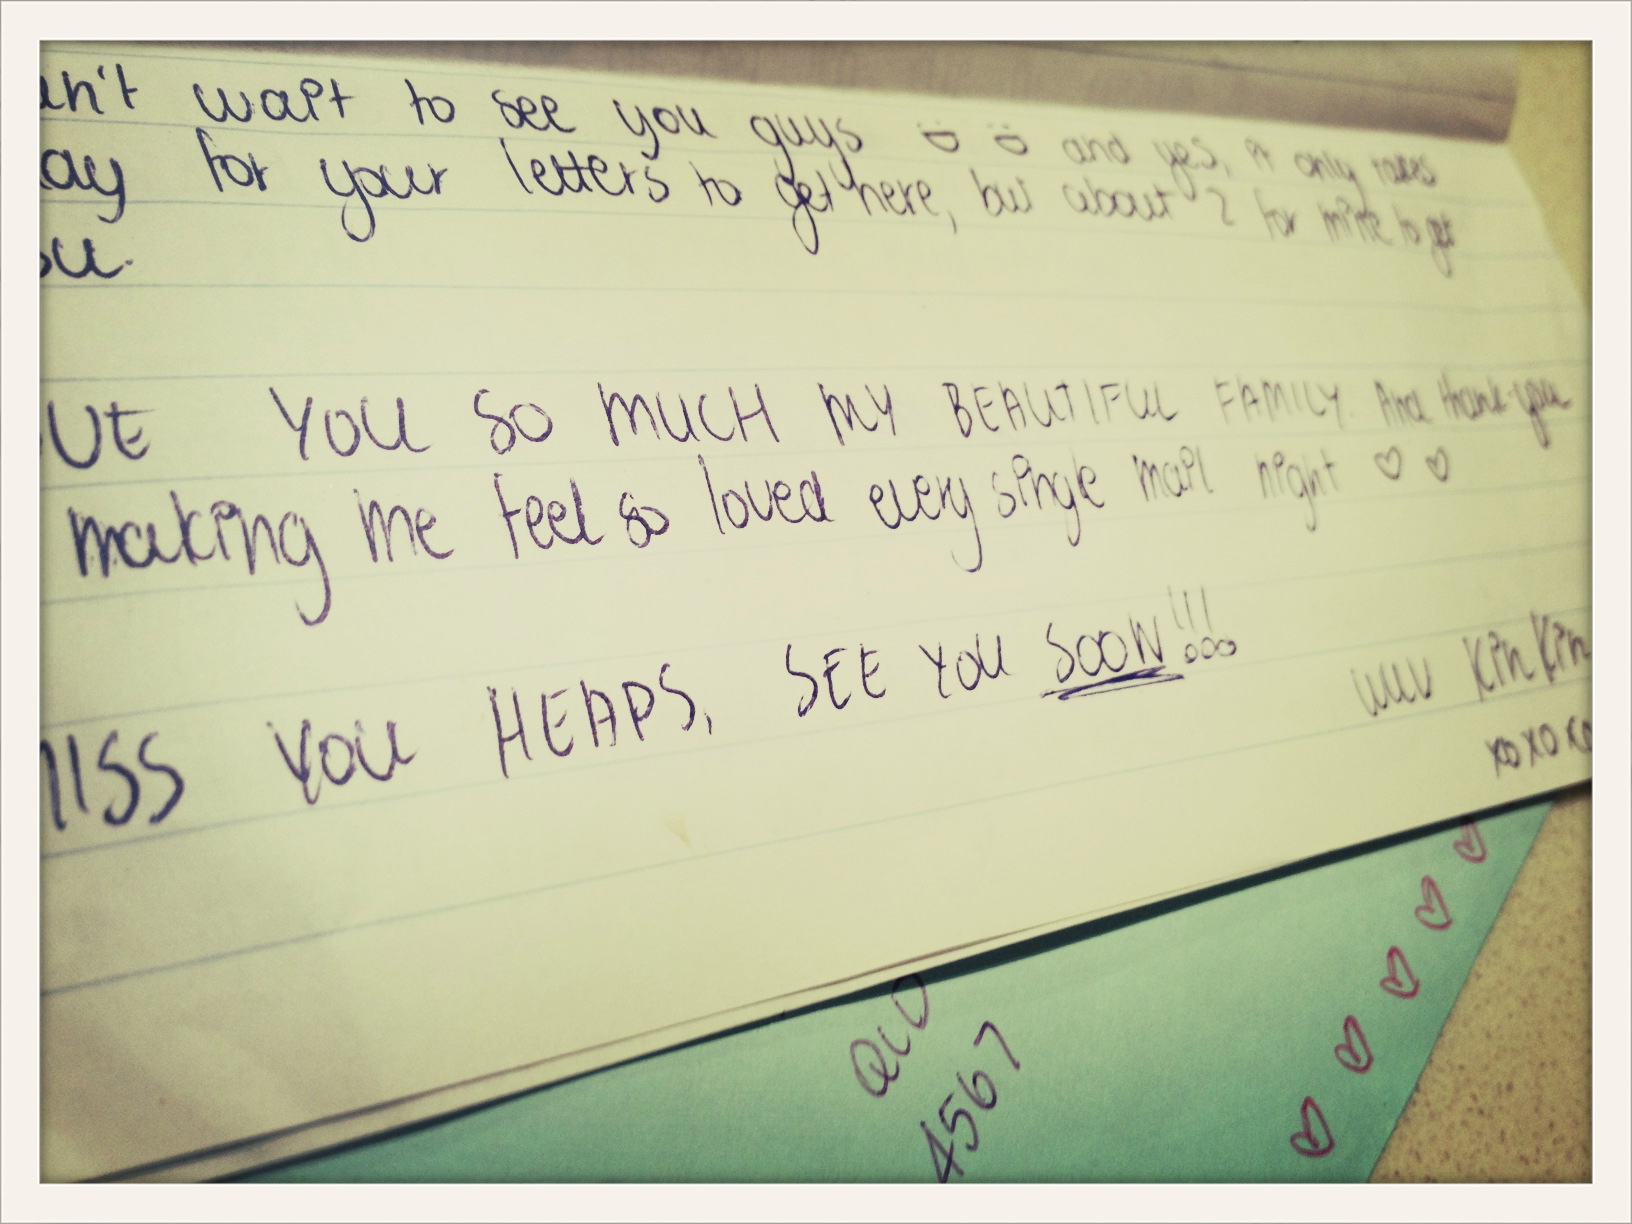 an't wait to see you guys and yes, it only takes
day for your letters to get here, but about 2 for mine to get
ou.
OVE YOU SO MUCH MY BEAUTIFUL FAMILY. And thank-you
making me feel so loved every single mail night ♡ ♡
MISS YOU HEAPS, SEE YOU SOON!!!
luuv KinKin
xoxoxo
QLD
4567